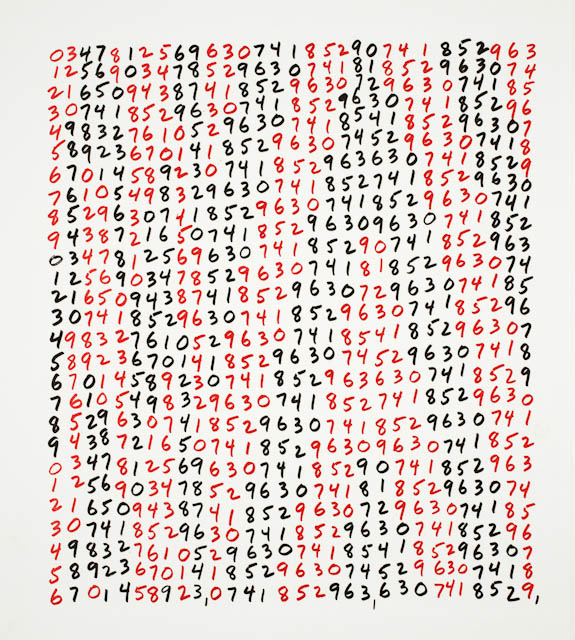 034781256963074185290741852963
125690347852963074181852963074
216509438741852963072963074185
307418529630741852963074185296
498327610529630741854185296307
589236701418529630745296307418
670145892307418529636307418529
761054983296307418527418529630
852963074185296307418529630741
943872165074185296309630741852
034781256963074185290741852963
125690347852963074181852963074
216509438741852963072963074185
307418529630741852963074185296
498327610529630741854185296307
589236701418529630745296307418
670145892307418529636307418529
761054983296307418527418529630
852963074185296307418529630741
943872165074185296309630741852
034781256963074185290741852963
125690347852963074181852963074
216509438741852963072963074185
307418529630741852963074185296
498327610529630741854185296307
589236701418529630745296307418
6701458923,0741852963,6307418529,